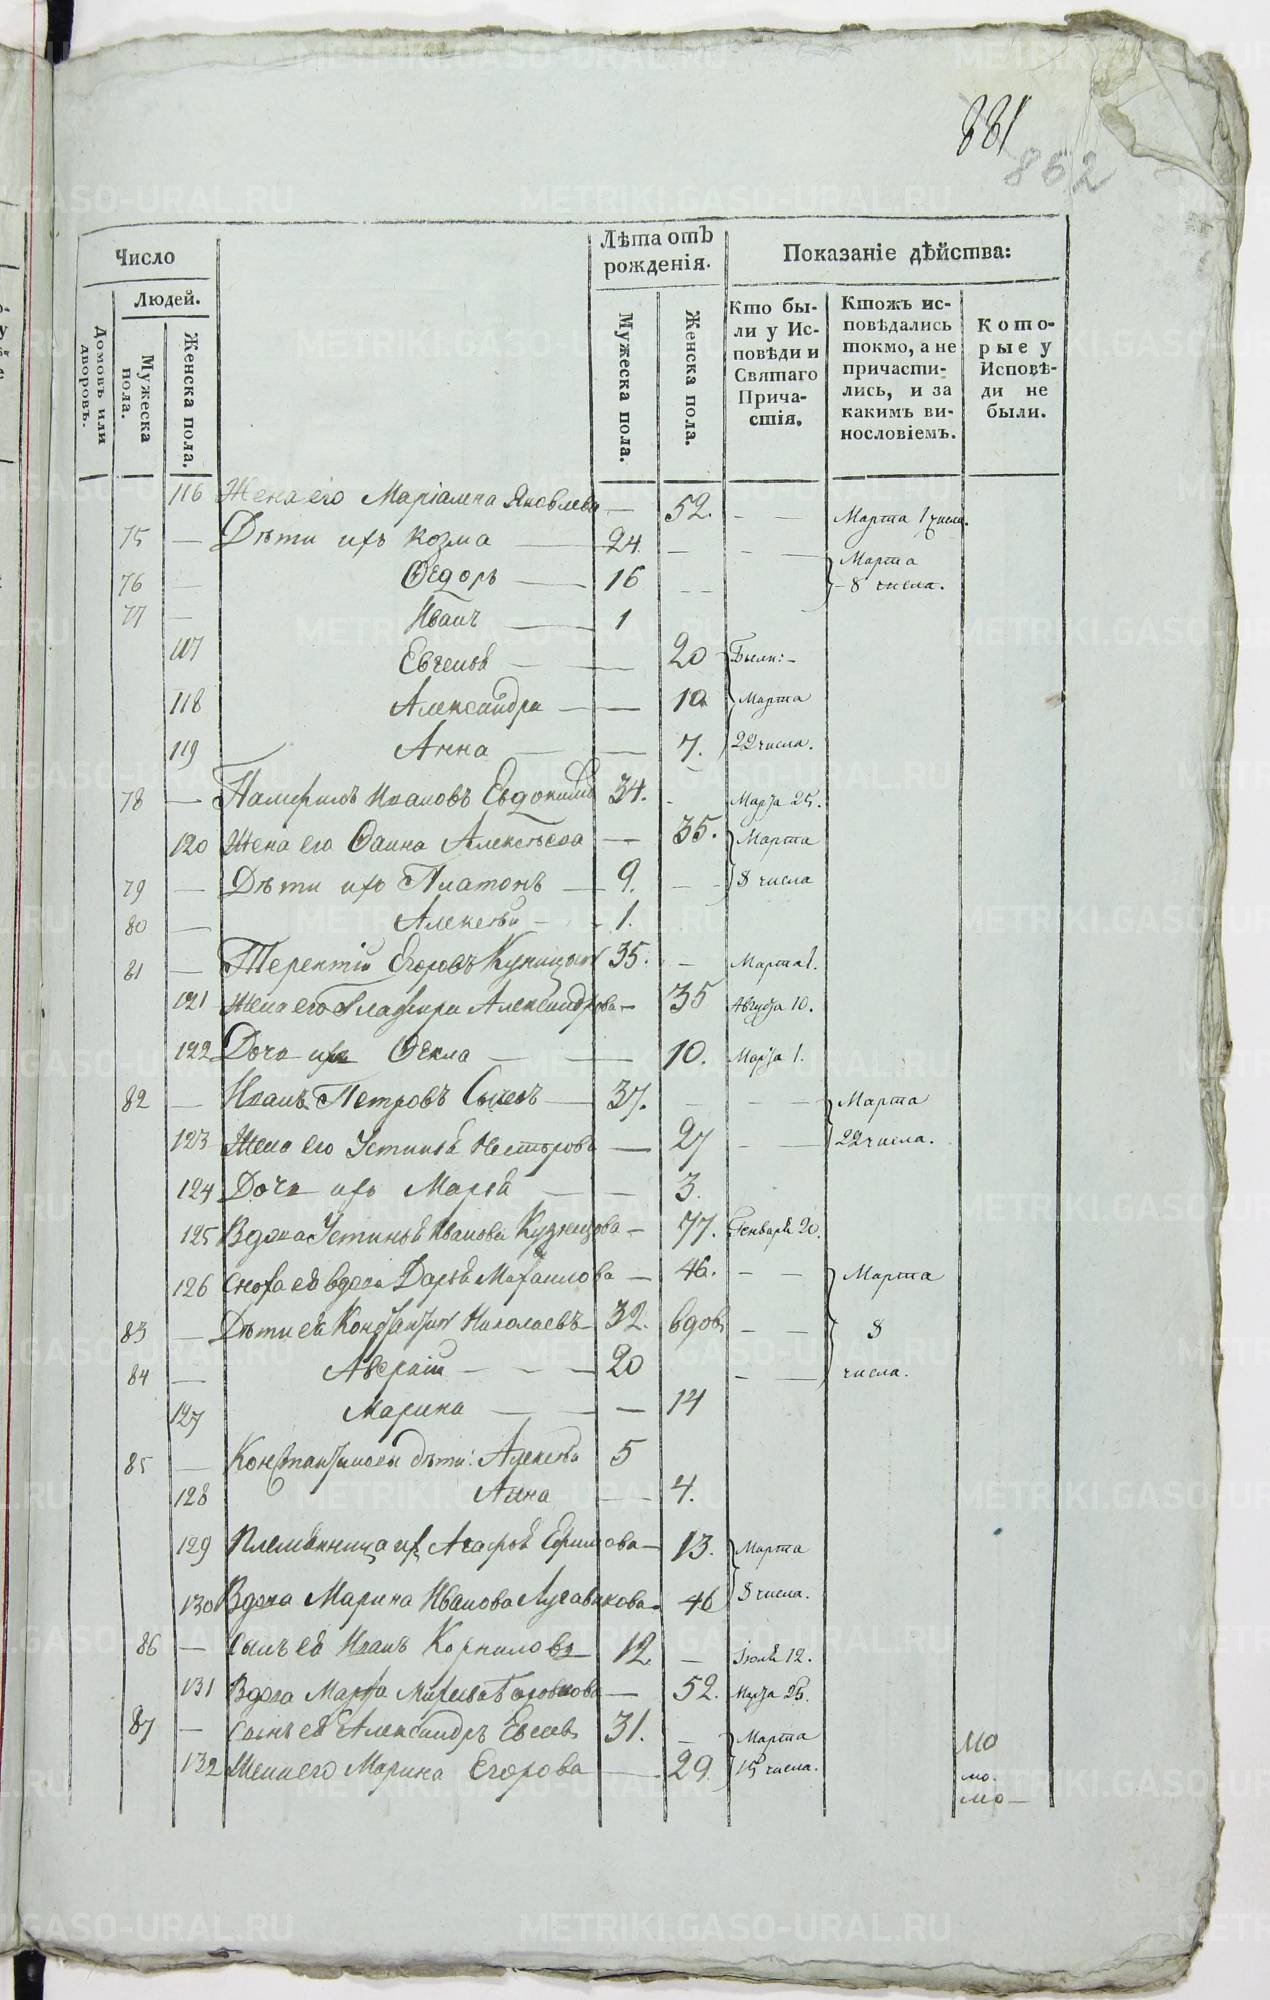 881
862
Число
Людей.
Домовъ или дворовъ.
Мужеска пола.
Женска пола.
Лѣта отъ рожденія.
Мужеска пола.
Женска пола.
Показаніе дѣйства:
Кто бы-
ли у Ис-
повѣди и
Святаго
Прича-
стія.
Ктожъ ис-
повѣдались
токмо, а не
причасти-
лись, и за
какимъ ви-
нословіемъ.
Кото-
рые у
Исповѣ-
ди не
были.
116 Жена его Маріамна Яковлева — 52. — — Марта 1 числа.
75 — Дѣти ихъ Козма — 24. — — — Марта
76 — Ѳедоръ — 16 — — 8 числа.
77 — Иванъ — 1
117 Евгенія — — 20 Были: —
118 Александра — — 10. Марта
119 Анна — — 7. 22 числа.
78 — Памфилъ Ивановъ Евдокимовъ 34. — Марта 25.
120 Жена его Фаина Алексѣева — 35. Марта
79 — Дѣти ихъ Платонъ — 9. — — 8 числа
80 — Алексѣй — 1.
81 — Терентій Егоровъ Куницынъ 35. — Марта 1.
121 Жена его Глафира Александрова — 35 Августа 10.
122 Дочь ихъ Ѳекла — — 10. Марта 1.
82 — Иванъ Петровъ — 37. — — — Марта
123 Жена его Устинія Нестерова — 27 — — 22 числа.
124 Дочь ихъ Марья — — 3.
125 Вдова Устинья Иванова Кузнецова — 77. Генваря 20.
126 Сноха ея вдова Дарья Михаилова — 46. — — Марта
83 — Дѣти ея Константинъ Николаевъ — 32. вдовъ — — 8
84 — Аверкій — — — 20 — — числа.
127 Марина — — — 14
85 — Константиновы дѣти: Алексѣй 5
128 Анна — — 4.
129 Племянница ихъ Агафья Ефимова — 13. Марта
130 Вдова Марина Иванова — 46 8 числа.
86 — Сынъ ея Иванъ Корниловъ — 12. — Іюля 12.
131 Вдова Марфа — 52. Марта 25.
87 — Сынъ ея Александръ Евсеевъ 31. — Марта
132 Жена его Марина Егорова — 29. 15 числа.
МО
мо.
мо —
METRIKI.GASO-URAL.RU